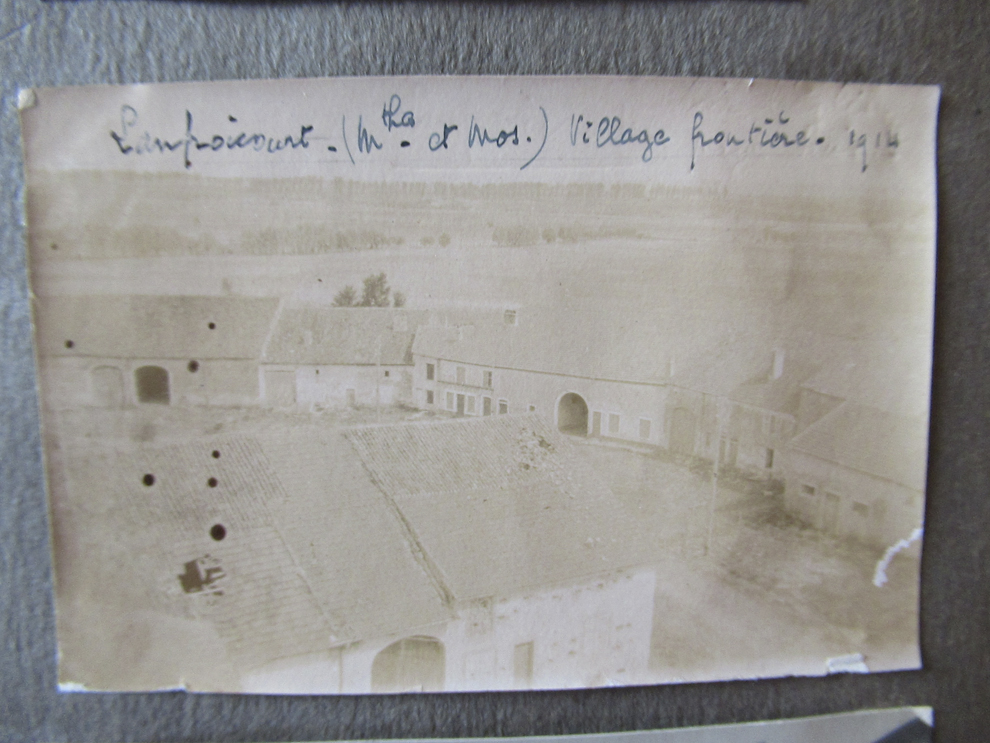 Lanfroicourt - (Mthe. et Mos.) Village frontière. 1914